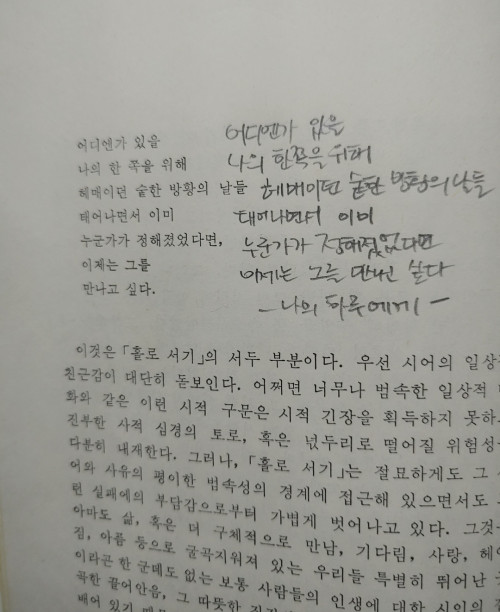 어디엔가 있을
나의 한 쪽을 위해
헤매이던 숱한 방황의 날들
태어나면서 이미
누군가가 정해졌었다면,
이제는 그를
만나고 싶다.
어디엔가 있을
나의 한쪽을 위해
헤매이던 숱한 방황의 날들
태어나면서 이미
누군가가 정해졌었다면
이제는 그를 만나고 싶다
– 나의 하루에게 –
이것은 「홀로 서기」의 서두 부분이다. 우선 시어의 일상
친근감이 대단히 돋보인다. 어쩌면 너무나 범속한 일상적
화와 같은 이런 시적 구문은 시적 긴장을 획득하지 못하
진부한 사적 심경의 토로, 혹은 넋두리로 떨어질 위험성
다분히 내재한다. 그러나, 「홀로 서기」는 절묘하게도 그
어와 사유의 평이한 범속성의 경계에 접근해 있으면서도
런 실패에의 부담감으로부터 가볍게 벗어나고 있다. 그것
아마도 삶, 혹은 더 구체적으로 만남, 기다림, 사랑, 헤
짐, 아픔 등으로 굴곡지워져 있는 우리들 특별히 뛰어난
이라곤 한 군데도 없는 보통 사람들의 인생에 대한 시인의
곡한 끌어안음, 그 따뜻한
배어 있기